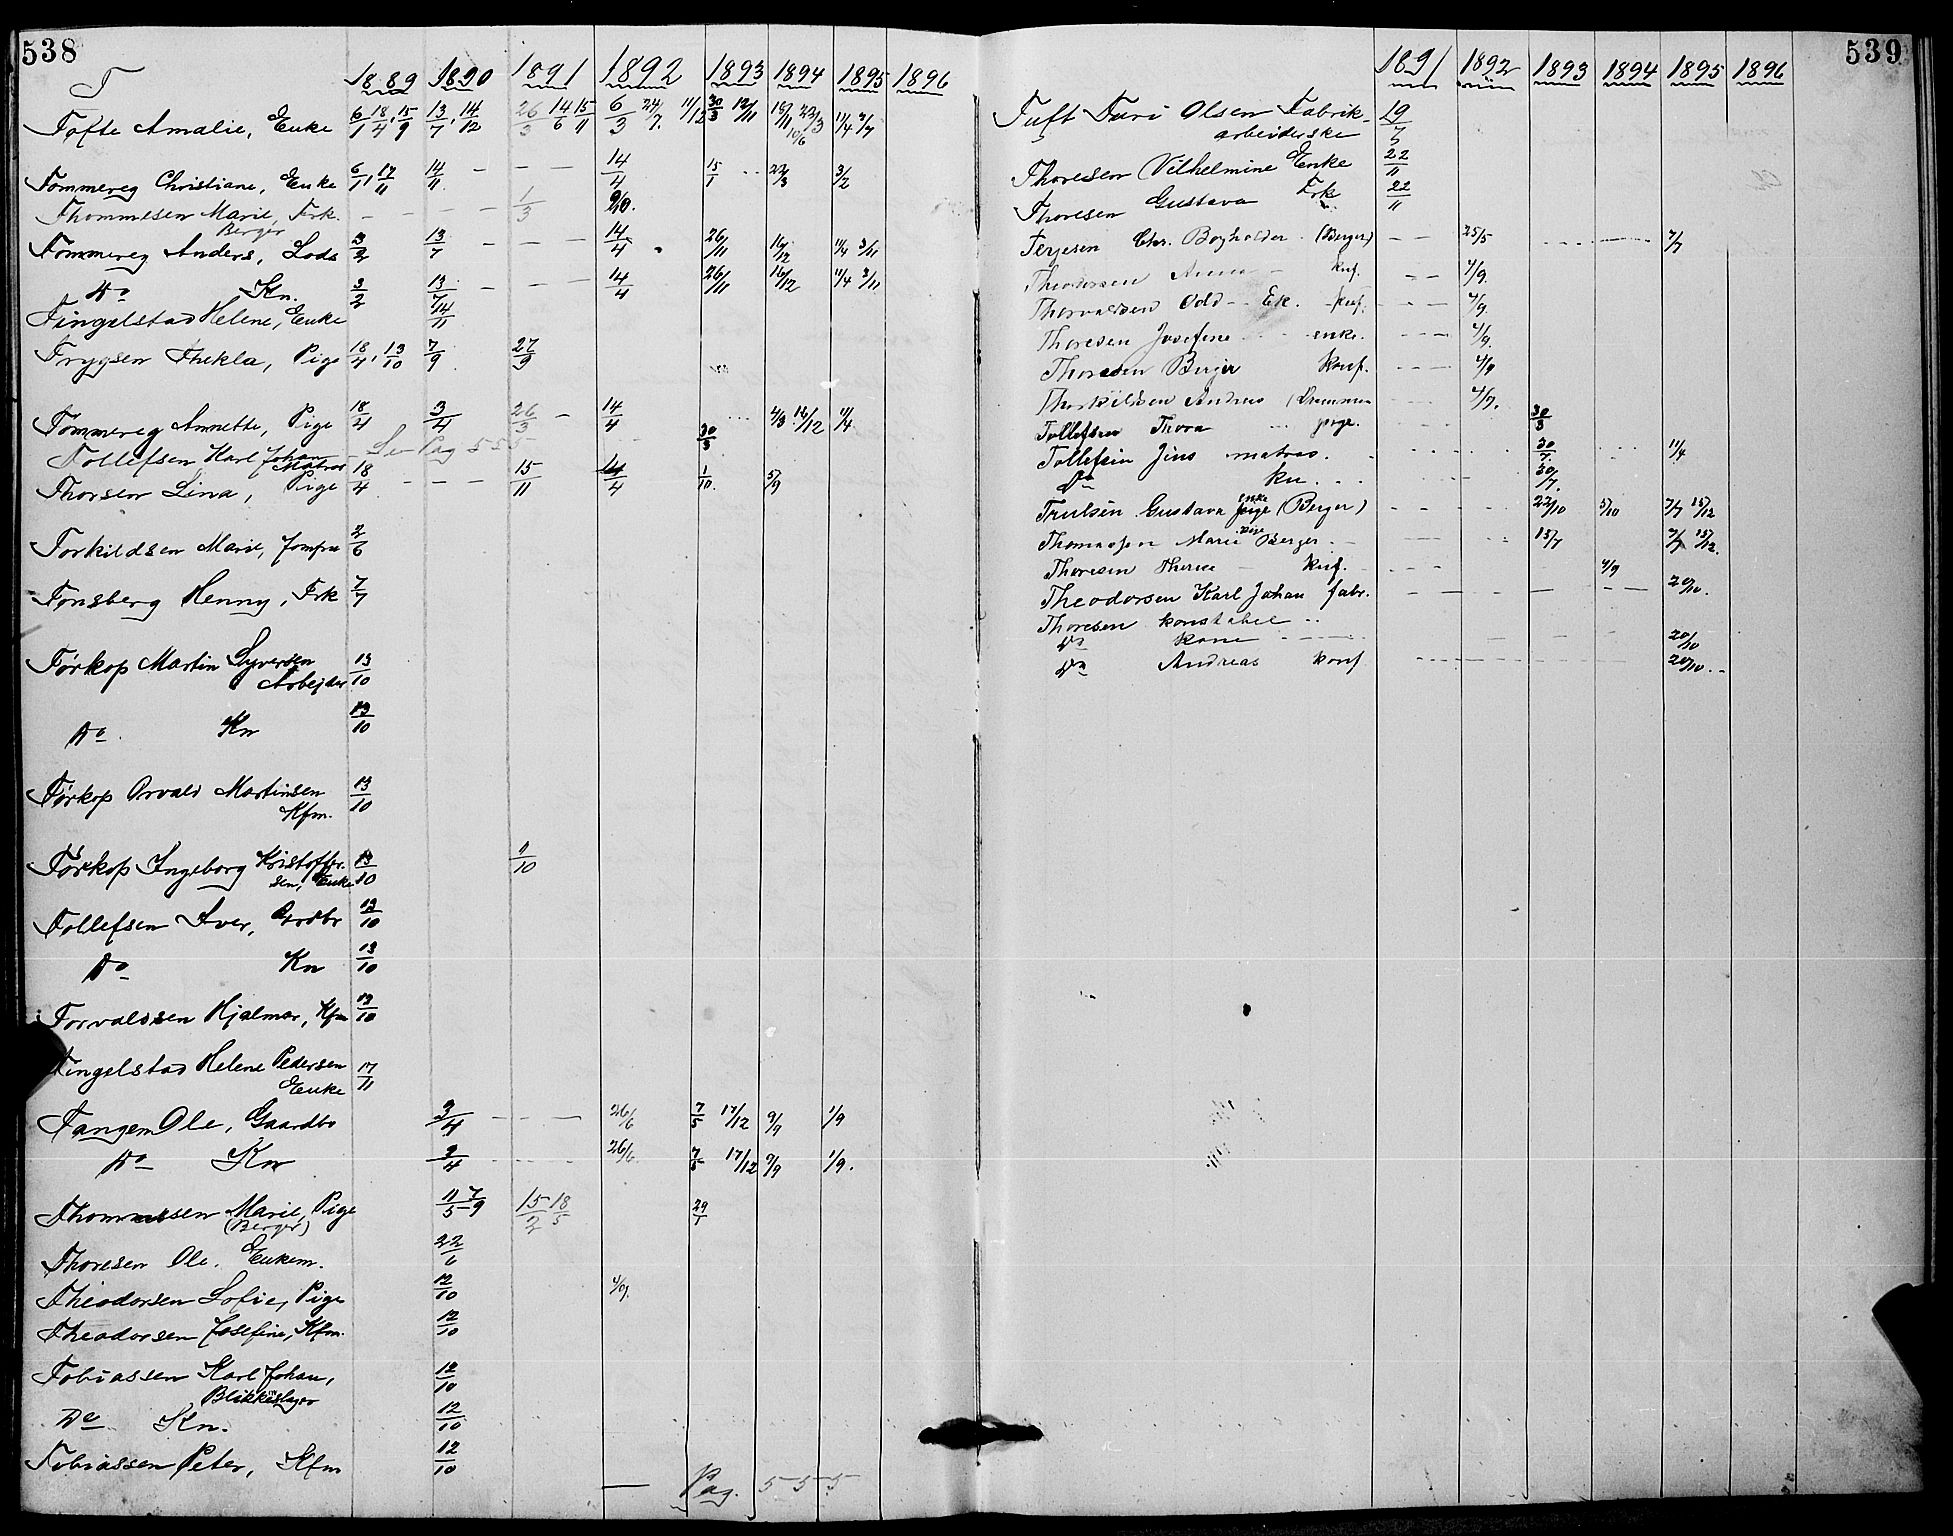 538
T 1889 1890 1891 1892 1893 1894 1895 1896
Tofte Amalie, Enke 6/1 18/4, 15/9 13/7, 14/12 26/3 14/6 15/11 6/3 24/7. 11/12 30/3 12/11 15/11 22/3 10/6 11/4 3/7
Tommereg Christiane, Enke 6/1, 17/11 14/11 - - - 14/4 15/1 .. 22/3 3/2
Thommesen Marie, Frk. - - - - 1/3 20.
Berger
Tommereg Anders, Lods 3/2 13/7 - - - 14/4 26/11 16/12 11/4 3/11
Do Kn. 3/2 13/7 - - - 14/4 26/11 16/12 11/4 3/11
Tingelstad Helene, Enke 14/11
Trygsen Thekla, Pige 18/4, 13/10 7/9 27/9
Tommereg Annette, Pige 18/4 3/4 26/3 - 14/4 ... 4/3 16/12 11/4
Tollefsen Karl Johan - Se Pag 555 30/3
Matros
Thorsen Lina, Pige 18/4 - - - 15/11 14/4 1/10. 5/9
Torkildsen Marie, Jomfru 2/6
Tønsberg Henny, Frk 7/7
Tørkop Martin Syversen 13/10
Arbejder
Do Kn 13/10
Tørkop Orvald Martinsen 13/10
Kfm.
Tørkop Ingeborg Kristoffer- 13/10 11/10
sen, Enke
Tollefsen Iver, Grdbr 13/10
Do Kn 13/10
Torvaldsen Hjalmar, Kfm 13/10
Tingelstad Helene Pedersen 17/11
Enke
Tangem Ole, Gaardbr 3/4 - - - 26/6 7/5 17/12 9/9 1/9
Do Kn 3/4 - - - 26/6. 7/5 17/12 9/9 1/9.
Thommesen Marie, Pige 11/5 - 7/9 15/2 18/5 29/1
(Berger)
Thoresen Ole. Enkem. 22/6
Theodorsen Sofie, Pige 12/10 4/9.
Theodorsen Josefine, Kfm. 12/10
Tobiassen Karl Johan, 12/10
Blikkenslager
Do Kn. 12/10
Tobiassen Peter, Kfm 12/10
— Pag. 555
539
1891 1892 1893 1894 1895 1896
Tuft Turi Olsen Fabrik- 19/7
arbeiderske
Thoresen Vilhelmine Enke 22/11
Thoresen Gustava Frk 22/11
Terjesen Chr. Bogholder (Berger) - - 25/5 7/7
Theodorsen Anna - knf. - - 4/9.
Thorvaldsen Odd - Ek. knf. - - - 4/9.
Thoresen Josefine enke. - - - 4/9.
Thoresen Berger konf. - - - 4/9
Thorkildsen Andreas (Drammen - - - 4/9.
Tollefsen Thora pige. - - 30/3
Tollefsen Jens matros. 30/7. 11/4
Do kn. 30/7.
Trulsen Gustava pige (Berger) 22/10 5/10 7/7 15/12
enke
Thomassen Marie Berger - 15/7 7/7 15/12.
Thoresen Therese - knf. 4/9
Theodorsen Karl Johan fabr. 20/10.
Thoresen konstabel ..
Do kone - - - 20/10
Do Andreas konf 20/10. -